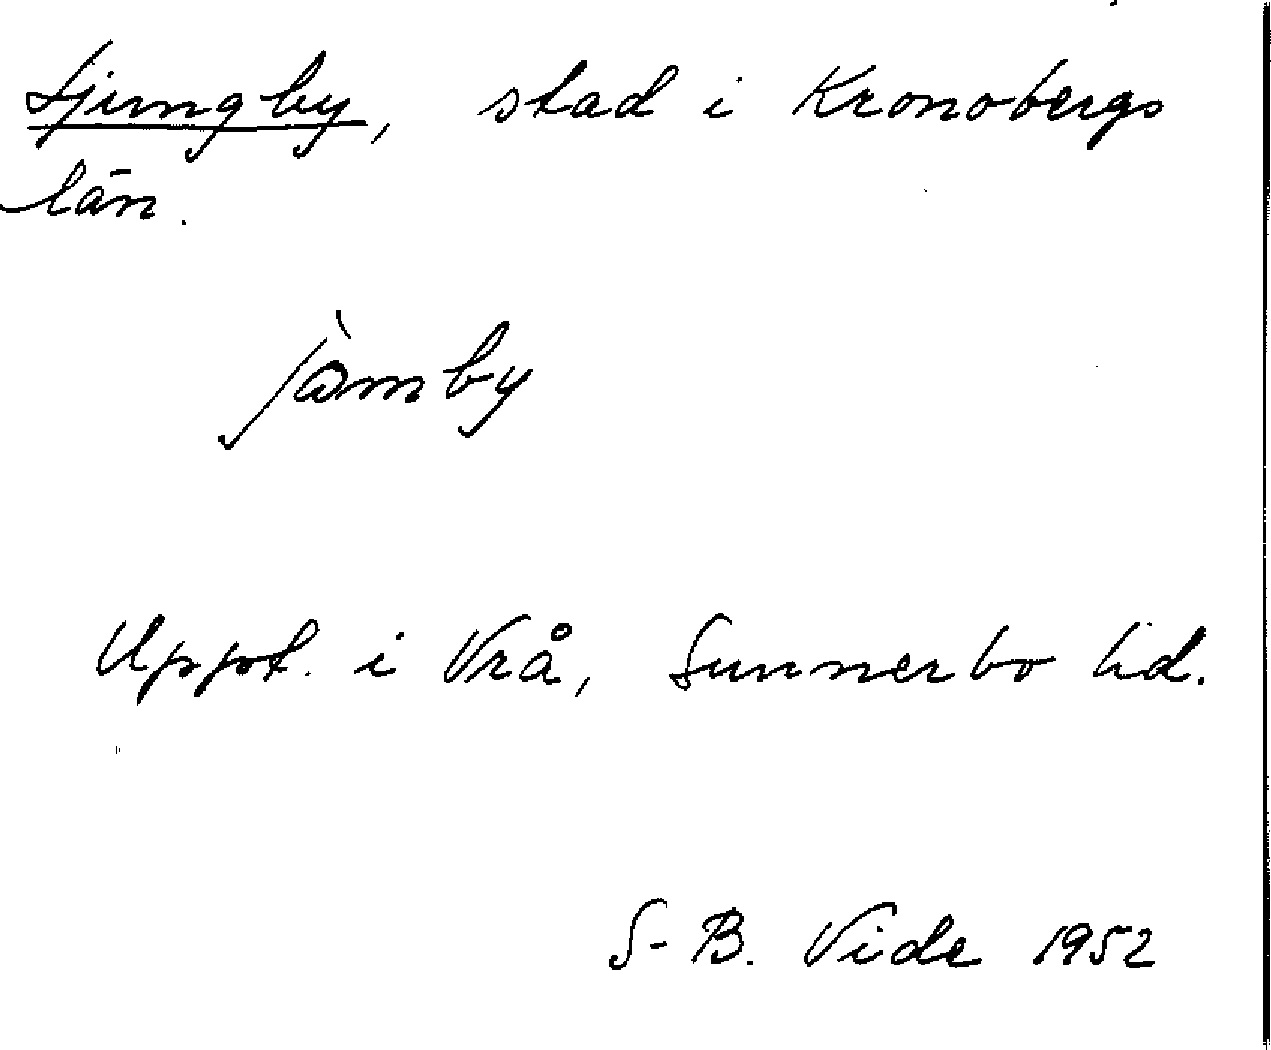 Ljungby, stad i Kronobergs
län.
jòmby
Uppt. i Vrå, Sunnerbo hd.
S-B. Vide 1952